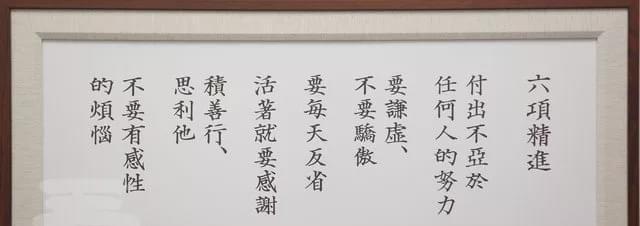 六項精進
付出不亞於
任何人的努力
要謙虛、
不要驕傲
要每天反省
活著就要感謝
積善行、
思利他
不要有感性
的煩惱